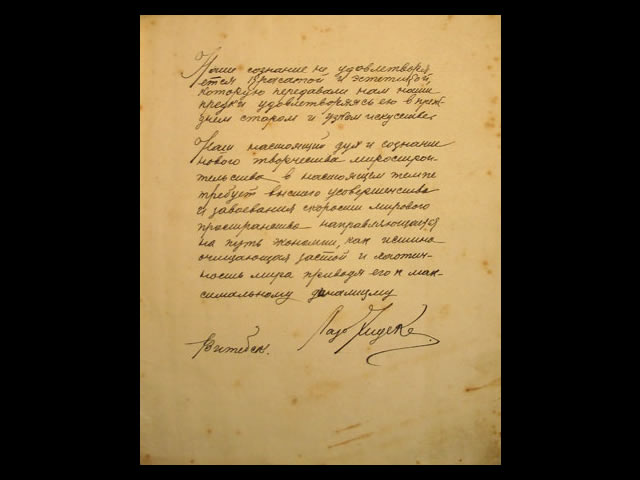 Наше сознание не удовлетворя
ется красотой и эстетикой,
которую передавали нам наши
предки удовлетворяясь ею в преж-
днем старом и узком искусстве.
Наш настоящий дух и сознание
нового творчества миростро-
ительства в настоящем темпе
требует высшего усовершенства
и завоевания скорости мирового
пространства направляющаяся
на путь экономии, как истина
очищающая застой и хаотич-
ность мира приводя его к мак-
симальному динамизму
Витебск. Лазарь Хидекель